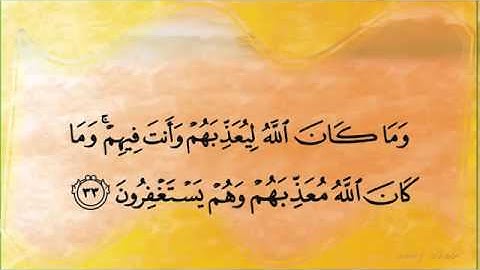 وَمَا كَانَ ٱللَّهُ لِيُعَذِّبَهُمْ وَأَنتَ فِيهِمْ ۚ وَمَا
كَانَ ٱللَّهُ مُعَذِّبَهُمْ وَهُمْ يَسْتَغْفِرُونَ ٣٣